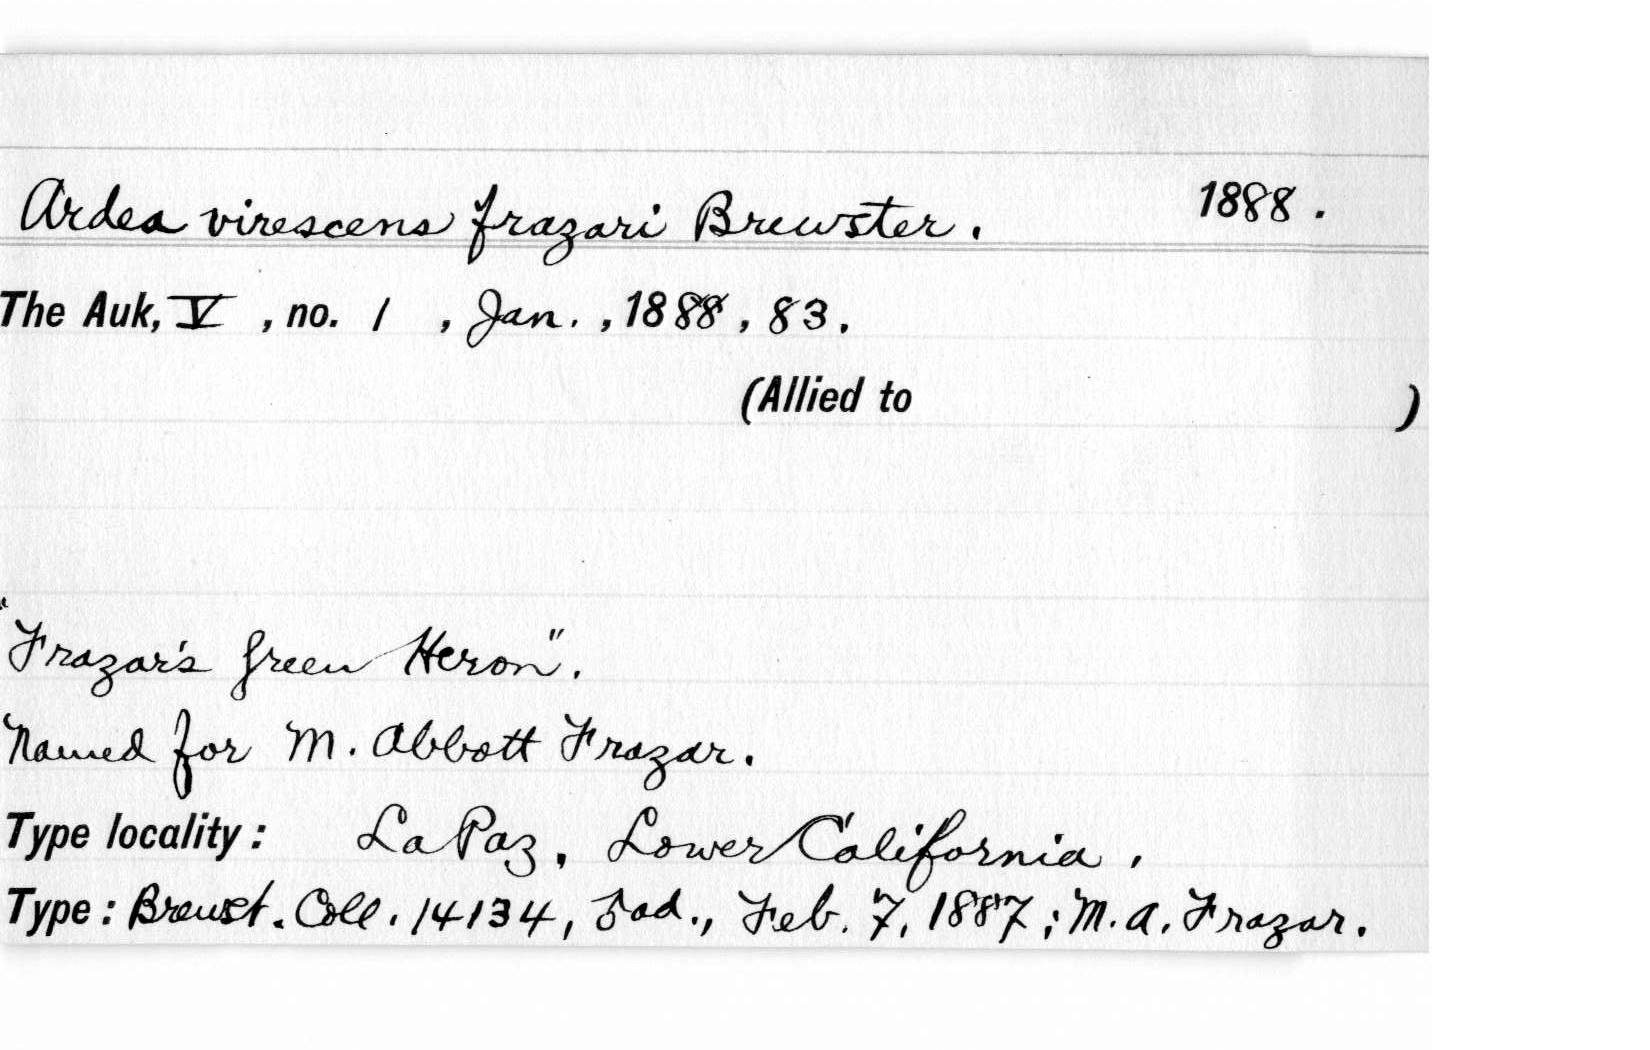 Ardea virescens frazari Brewster. 1888.
The Auk, V, no. 1, Jan., 1888, 83.
(Allied to )
"Frazar's Green Heron".
Named for M. Abbott Frazar.
Type locality: La Paz, Lower California,
Type: Brewst. Coll. 14134, ad., Feb. 7, 1887; M. A. Frazar.